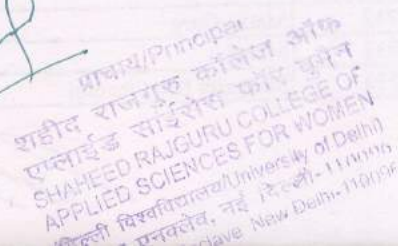 प्राचार्य/Principal
शहीद राजगुरु कॉलेज ऑफ
एप्लाईड साईंसेस फॉर वूमेन
SHAHEED RAJGURU COLLEGE OF
APPLIED SCIENCES FOR WOMEN
दिल्ली विश्वविद्यालय/University of Delhi)
एनक्लेव, नई दिल्ली-110096
New Delhi-110096